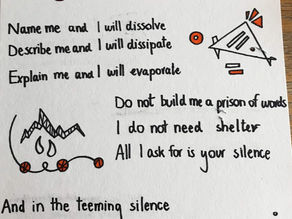 Name me and I will dissolve
Describe me and I will dissipate
Explain me and I will evaporate
Do not build me a prison of words
I do not need shelter
All I ask for is your silence
And in the teeming silence